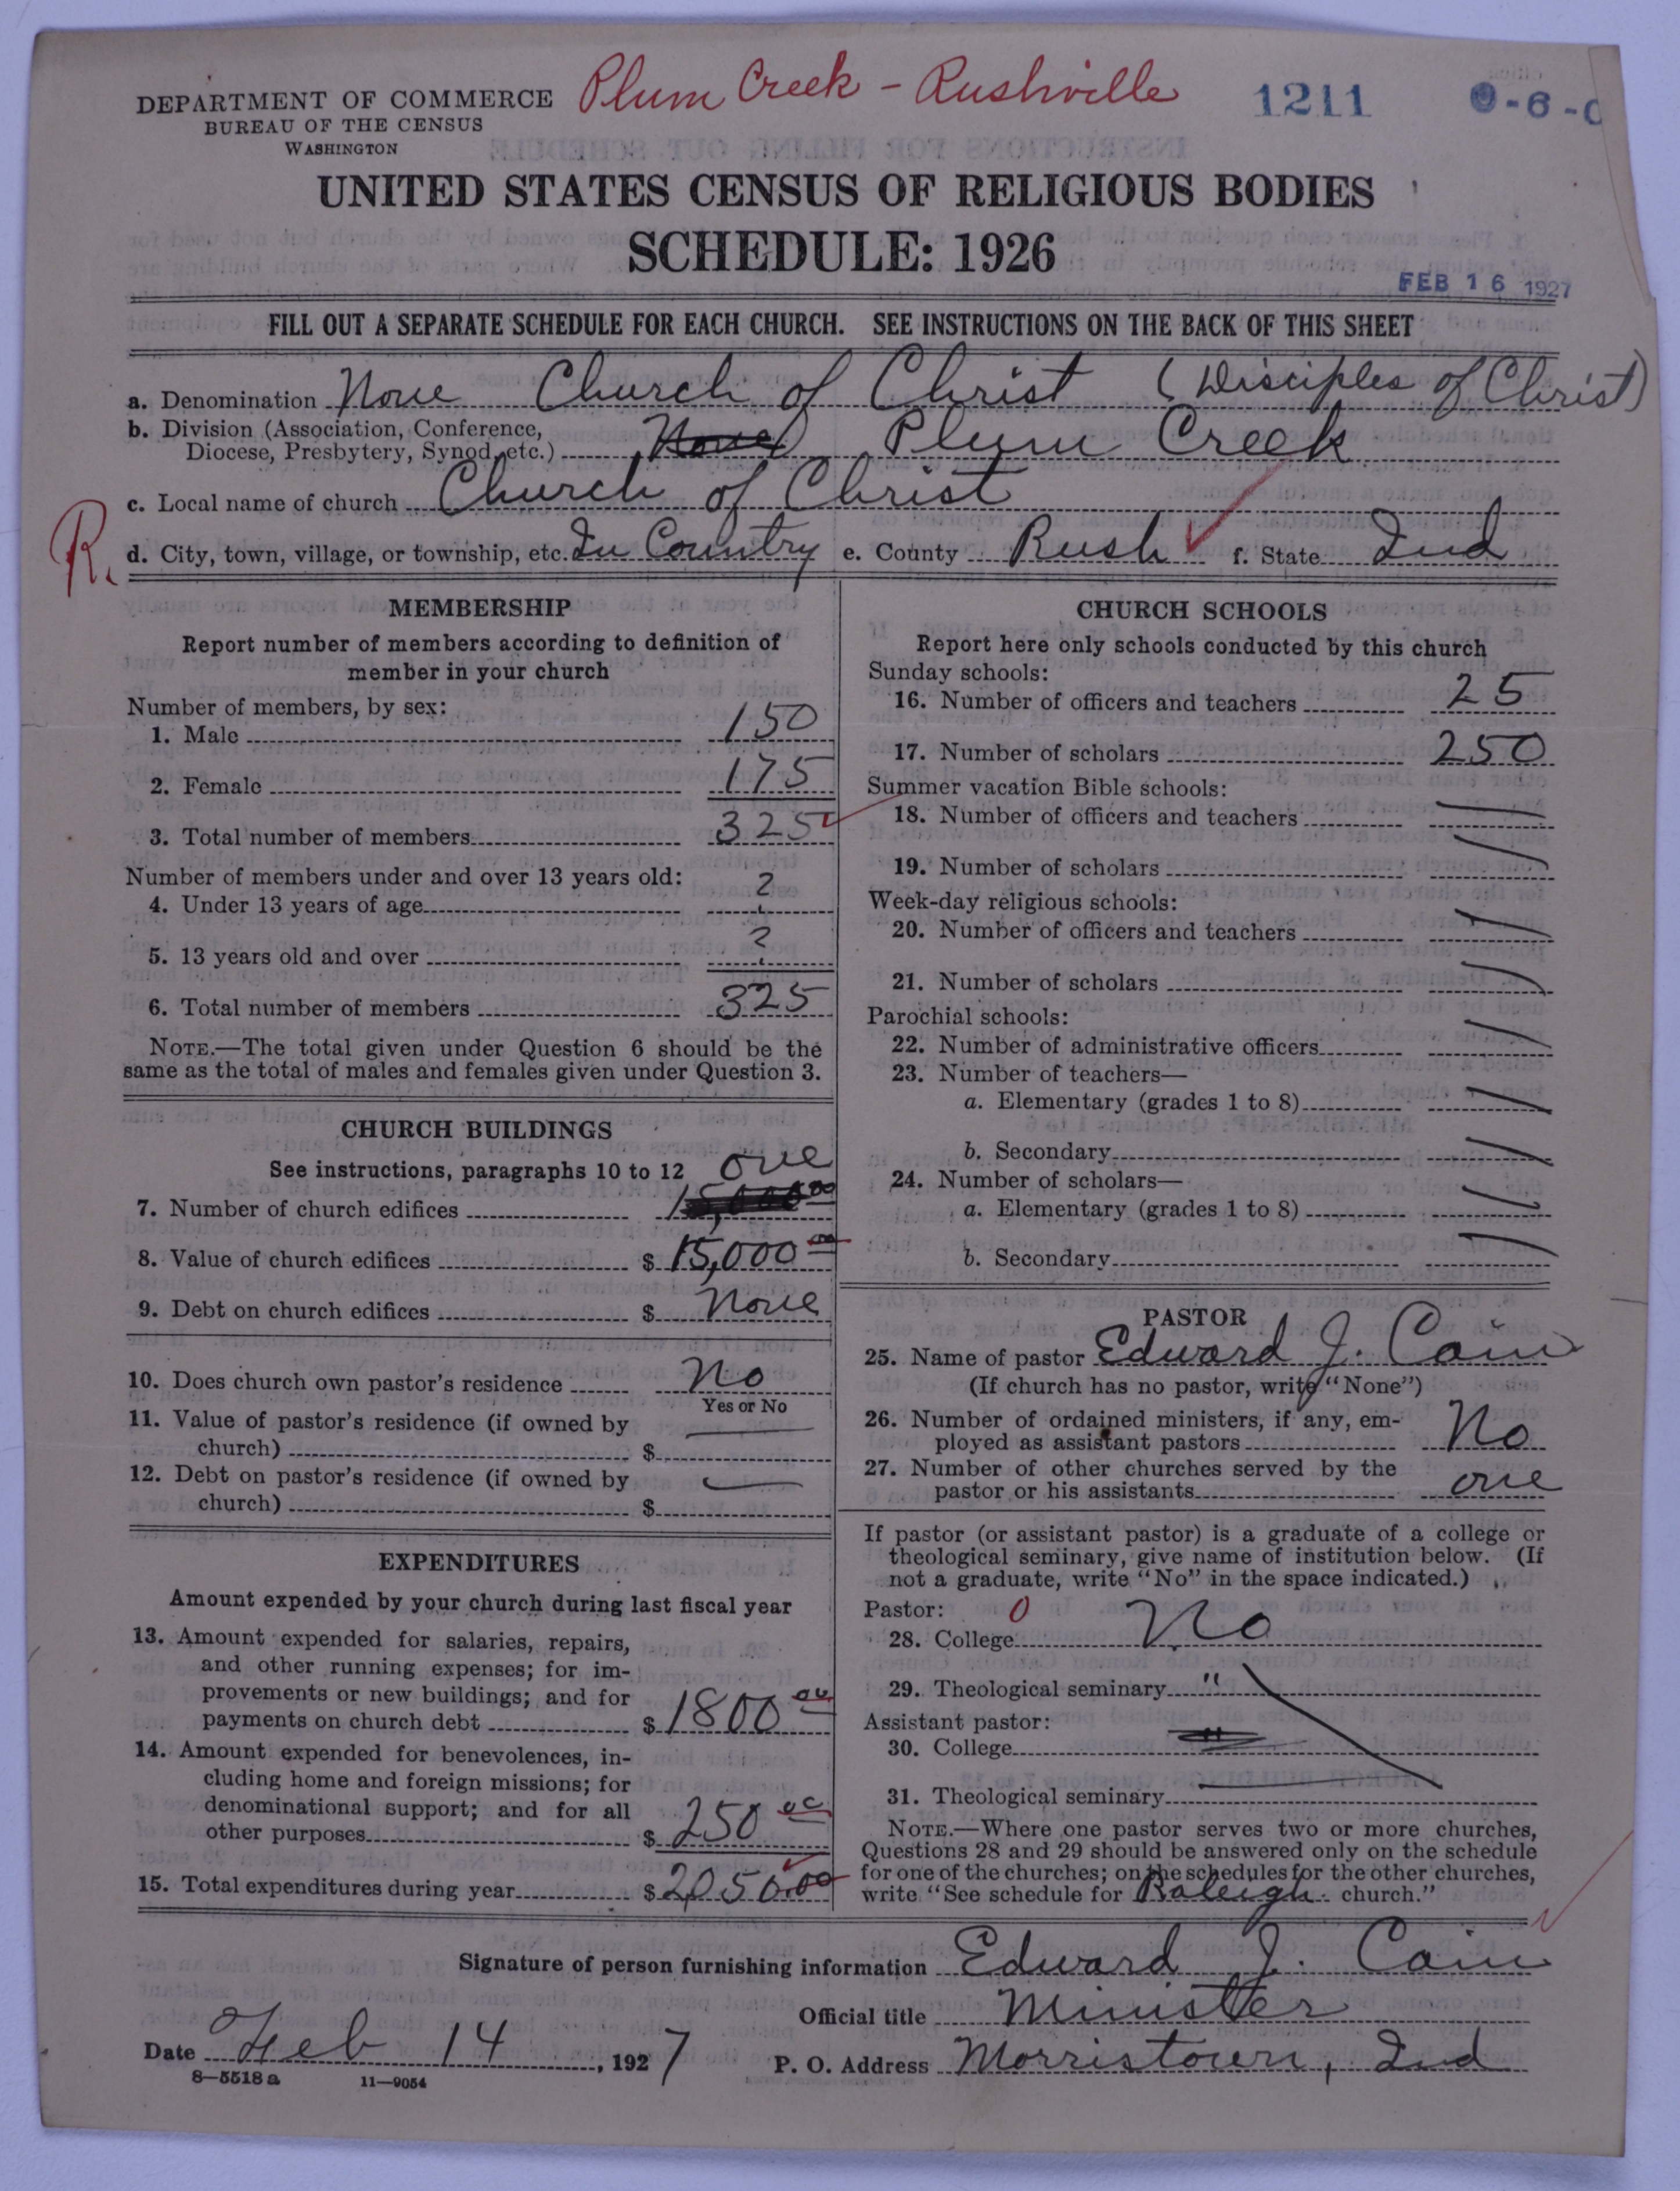 Plum Creek - Rushville
1211
DEPARTMENT OF COMMERCE
BUREAU OF THE CENSUS
WASHINGTON
UNITED STATES CENSUS OF RELIGIOUS BODIES
SCHEDULE: 1926
FEB 16 1927
FILL OUT A SEPARATE SCHEDULE FOR EACH CHURCH. SEE INSTRUCTIONS ON THE BACK OF THIS SHEET
a. Denomination None Church of Christ (Disciples of Christ)
b. Division (Association, Conference,
Diocese, Presbytery, Synod, etc.) None Plum Creek
c. Local name of church Church of Christ
R. d. City, town, village, or township, etc. In Country e. County Rush f. State Ind
MEMBERSHIP
Report number of members according to definition of
member in your church
Number of members, by sex:
1. Male 150
2. Female 175
3. Total number of members 325
Number of members under and over 13 years old:
4. Under 13 years of age ?
5. 13 years old and over ?
6. Total number of members 325
NOTE.—The total given under Question 6 should be the
same as the total of males and females given under Question 3.
CHURCH BUILDINGS
See instructions, paragraphs 10 to 12
7. Number of church edifices one 15,000 00
8. Value of church edifices $ 15,000 00
9. Debt on church edifices $ None
10. Does church own pastor's residence No
Yes or No
11. Value of pastor's residence (if owned by
church) $
12. Debt on pastor's residence (if owned by
church) $
EXPENDITURES
Amount expended by your church during last fiscal year
13. Amount expended for salaries, repairs,
and other running expenses; for im-
provements or new buildings; and for
payments on church debt $ 1800 00
14. Amount expended for benevolences, in-
cluding home and foreign missions; for
denominational support; and for all
other purposes $ 250 00
15. Total expenditures during year $ 2050.00
CHURCH SCHOOLS
Report here only schools conducted by this church
Sunday schools:
16. Number of officers and teachers 25
17. Number of scholars 250
Summer vacation Bible schools:
18. Number of officers and teachers
19. Number of scholars
Week-day religious schools:
20. Number of officers and teachers
21. Number of scholars
Parochial schools:
22. Number of administrative officers
23. Number of teachers—
a. Elementary (grades 1 to 8)
b. Secondary
24. Number of scholars—
a. Elementary (grades 1 to 8)
b. Secondary
PASTOR
25. Name of pastor Edward J. Cain
(If church has no pastor, write "None")
26. Number of ordained ministers, if any, em-
ployed as assistant pastors No
27. Number of other churches served by the
pastor or his assistants one
If pastor (or assistant pastor) is a graduate of a college or
theological seminary, give name of institution below. (If
not a graduate, write "No" in the space indicated.)
Pastor: 0
28. College No
29. Theological seminary "
Assistant pastor:
30. College "
31. Theological seminary
NOTE.—Where one pastor serves two or more churches,
Questions 28 and 29 should be answered only on the schedule
for one of the churches; on the schedules for the other churches,
write "See schedule for Raleigh church."
Signature of person furnishing information Edward J. Cain
Official title Minister
Date Feb 14, 1927
P. O. Address Morristown, Ind
8—5518a 11—9054